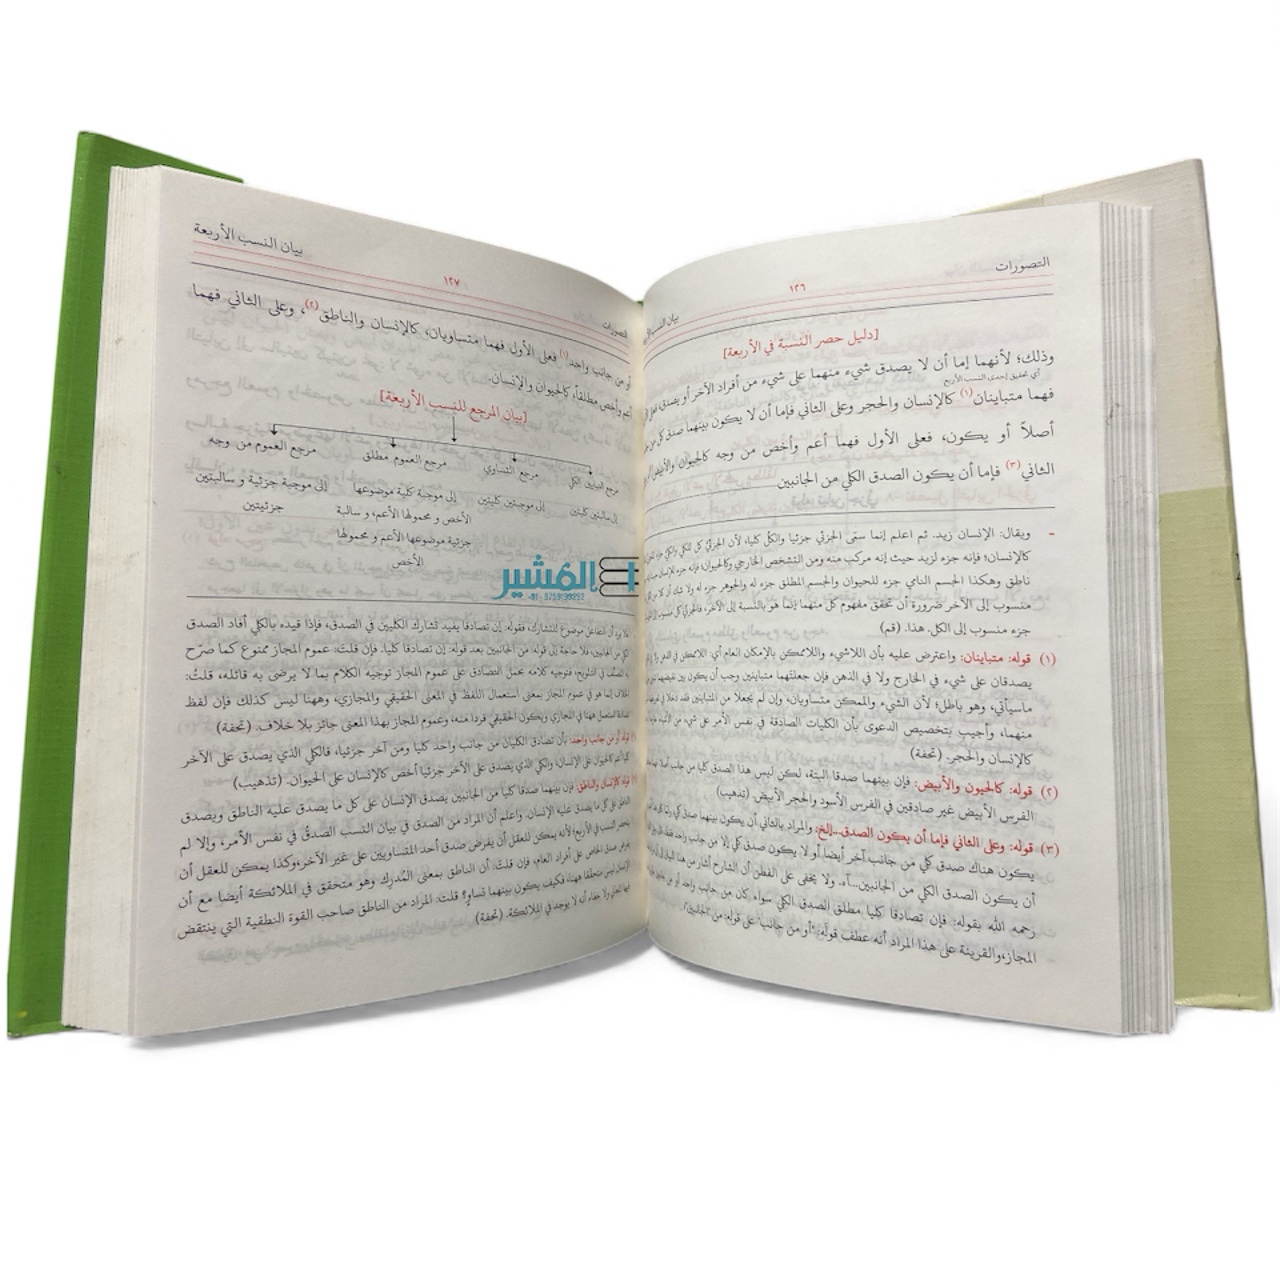 التصورات
١٢٦
بيان النسب
[دليل حصر النسبة في الأربعة]
وذلك؛ لأنهما إما أن لا يصدق شيء منهما على شيء من أفراد الآخر أو يصدق، فعلى
أي تحقيق إحدى النسب الأربع
فهما متباينان (١) كالإنسان والحجر وعلى الثاني فإما أن لا يكون بينهما صدق كل من
أصلاً أو يكون، فعلى الأول فهما أعم وأخص من وجه كالحيوان والأبيض
الثاني (٣) فإما أن يكون الصدق الكلي من الجانبين
- ويقال: الإنسان زيد. ثم اعلم إنما سمّى الجزئي جزئيا والكلّ كليا، لأن الجزئيّ كل للكلي والكلي جزء
كالإنسان؛ فإنه جزء لزيد حيث إنه مركب منه ومن التشخص الخارجي وكالحيوان؛ فإنه جزء للإنسان
ناطق وهكذا الجسم النامي جزء للحيوان والجسم المطلق جزء له والجوهر جزء له ولا شك أن
منسوب إلى الآخر ضرورة أن تحقق مفهوم كل منهما إنما هو بالنسبة إلى الآخر، فالجزئي
جزء منسوب إلى الكل. هذا. (قم)
(١) قوله: متباينان: واعترض عليه بأن اللاشيء واللاممكن بالإمكان العام أي: اللاممكن في الذهن
يصدقان على شيء في الخارج ولا في الذهن فإن جعلتهما متباينين وجب أن يكون بين نقيضيهما
ماسيأتي، وهو باطل؛ لأن الشيء والممكن متساويان، وإن لم يجعلا من المتباينين فقد دخلا في
منهما، وأجيب بتخصيص الدعوى بأن الكليات الصادقة في نفس الأمر على شيء من
كالإنسان والحجر. (تحفة)
(٢) قوله: كالحيون والأبيض: فإن بينهما صدقا البتة، لكن ليس هذا الصدق كليا من جانب أصلا
الفرس الأبيض غير صادقين في الفرس الأسود والحجر الأبيض. (تذهيب)
(٣) قوله: وعلى الثاني فإما أن يكون الصدق...إلخ: والمراد بالثاني أن يكون بينهما صدق كلي
يكون هناك صدق كلي من جانب آخر أيضا أو لا يكون صدق كلي إلا من جانب واحد
أن يكون الصدق الكلي من الجانبين...آه. ولا يخفى على الفطن أن الشارح أشار من هذا
رحمه الله بقوله: فإن تصادقا كليا مطلق الصدق الكلي سواء كان من جانب واحد أو من
المجاز،والقرينة على هذا المراد أنه عطف قوله: "أو من جانب" على قوله: من "الجانبين".
بيان النسب الأربعة
١٢٧
التصورات
أو من جانب واحد (١) فعلى الأول فهما متساويان، كالإنسان والناطق (٢)، وعلى الثاني فهما
أعم وأخص مطلقاً كالحيوان والإنسان.
[بيان المرجع للنسب الأربعة]
مرجع التباين الكلي مرجع التساوي مرجع العموم مطلق مرجع العموم من وجه
إلى سالبتين كليتين إلى موجبتين كليتين إلى موجبة كلية موضوعها إلى موجبة جزئية و سالبتين
الأخص و محمولها الأعم، و سالبة جزئيتين
جزئية موضوعها الأعم و محمولها
الأخص
المشير
+91 - 9759199292
التفاعل موضوع للتشارك، فقوله: إن تصادقا يفيد تشارك الكليين في الصدق، فإذا قيده بالكلي أفاد الصدق
الكلي من الجانبين، فلا حاجة إلى قوله: من الجانبين بعد قوله: إن تصادقا كليا. فإن قلتَ: عموم المجاز ممنوع كما صرّح
به المصنف في التلويح، فتوجيه كلامه بحمل التصادق على عموم المجاز توجيه الكلام بما لا يرضى به قائله، قلتُ:
الخلاف إنما هو في عموم المجاز بمعنى استعمال اللفظ في المعنى الحقيقي والمجازي، وههنا ليس كذلك فإن لفظ
استعمل ههنا في المجازي ويكون الحقيقي فردا منه، وعموم المجاز بهذا المعنى جائز بلا خلاف. (تحفة)
قوله: أو من جانب واحد: بأن تصادق الكليان من جانب واحد كليا ومن آخر جزئيا، فالكلي الذي يصدق على الآخر
كليا أعم كالحيوان على الإنسان، والكلي الذي يصدق على الآخر جزئيا أخص كالإنسان على الحيوان. (تذهيب)
قوله: كالإنسان والناطق: فإن بينهما صدقا كليا من الجانبين يصدق الإنسان على كل ما يصدق عليه الناطق ويصدق
الناطق على كل ما يصدق عليه الإنسان. واعلم أن المراد من الصدق في بيان النسب الصدقُ في نفس الأمر، وإلا لم
ينحصر النسب في الأربع؛ لأنه يمكن للعقل أن يفرض صدق أحد المتساويين على غير الآخر،وكذا يمكن للعقل أن
يفرض صدق الخاص على أفراد العام، فإن قلتَ: أن الناطق بمعنى المُدرِك وهو متحقق في الملائكة أيضا مع أن
الإنسان ليس متحققا ههنا، فكيف يكون بينهما تساوٍ؟ قلتُ: المراد من الناطق صاحب القوة النطقية التي ينتقض
فيها المعاني ولا خفاء أنه لا يوجد في الملائكة. (تحفة)